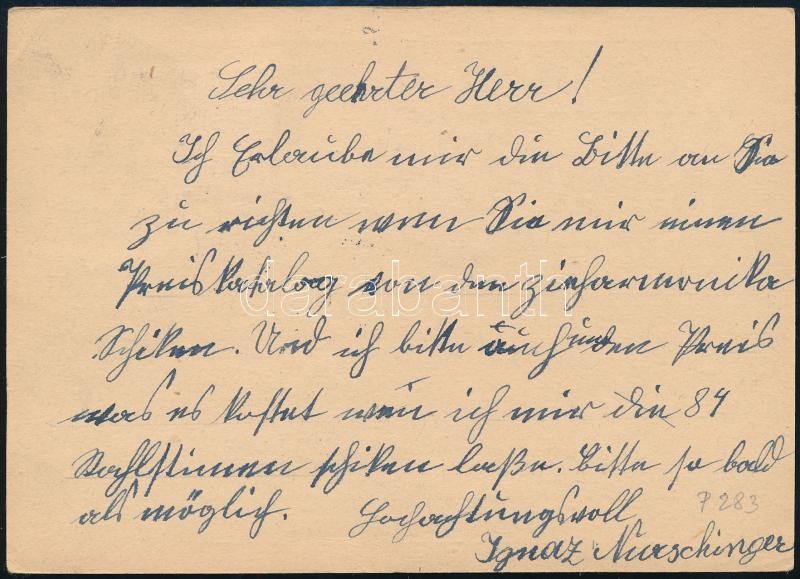 Sehr geehrter Herr!
Ich Erlaube mir die Bitte an Sie
zu richten wen Sie mir einen
Preiskatalog von der zieharmonika
Schiken. Und ich bitte auch um den Preis
was es kostet wen ich mir die 84
Stahlstimen schiken laße. bitte so bald
als möglich. Hochachtungsvoll
Ignaz Nurschinger
P 283
darabanth